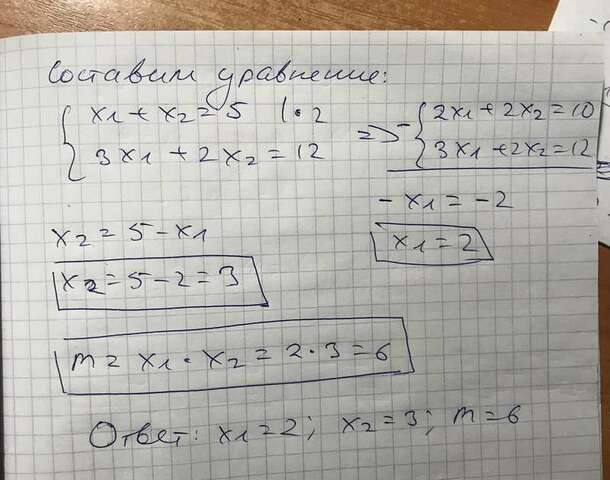 Составим уравнение:
{ x1 + x2 = 5 | · 2
3x1 + 2x2 = 12
=> - { 2x1 + 2x2 = 10
3x1 + 2x2 = 12
- x1 = -2
x1 = 2
x2 = 5 - x1
x2 = 5 - 2 = 3
m = x1 · x2 = 2 · 3 = 6
Ответ: x1 = 2; x2 = 3; m = 6